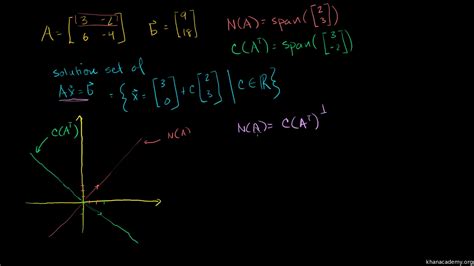 A = [3 -2
6 -4] b⃗ = [9
18] N(A) = span([2
3])
C(Aᵀ) = span([3
-2])
solution set of
Ax⃗ = b⃗ = { x⃗ = [3
0] + c [2
3] | c ∈ ℝ }
N(A) = C(Aᵀ)⊥
C(Aᵀ) N(A)
khanacademy.org